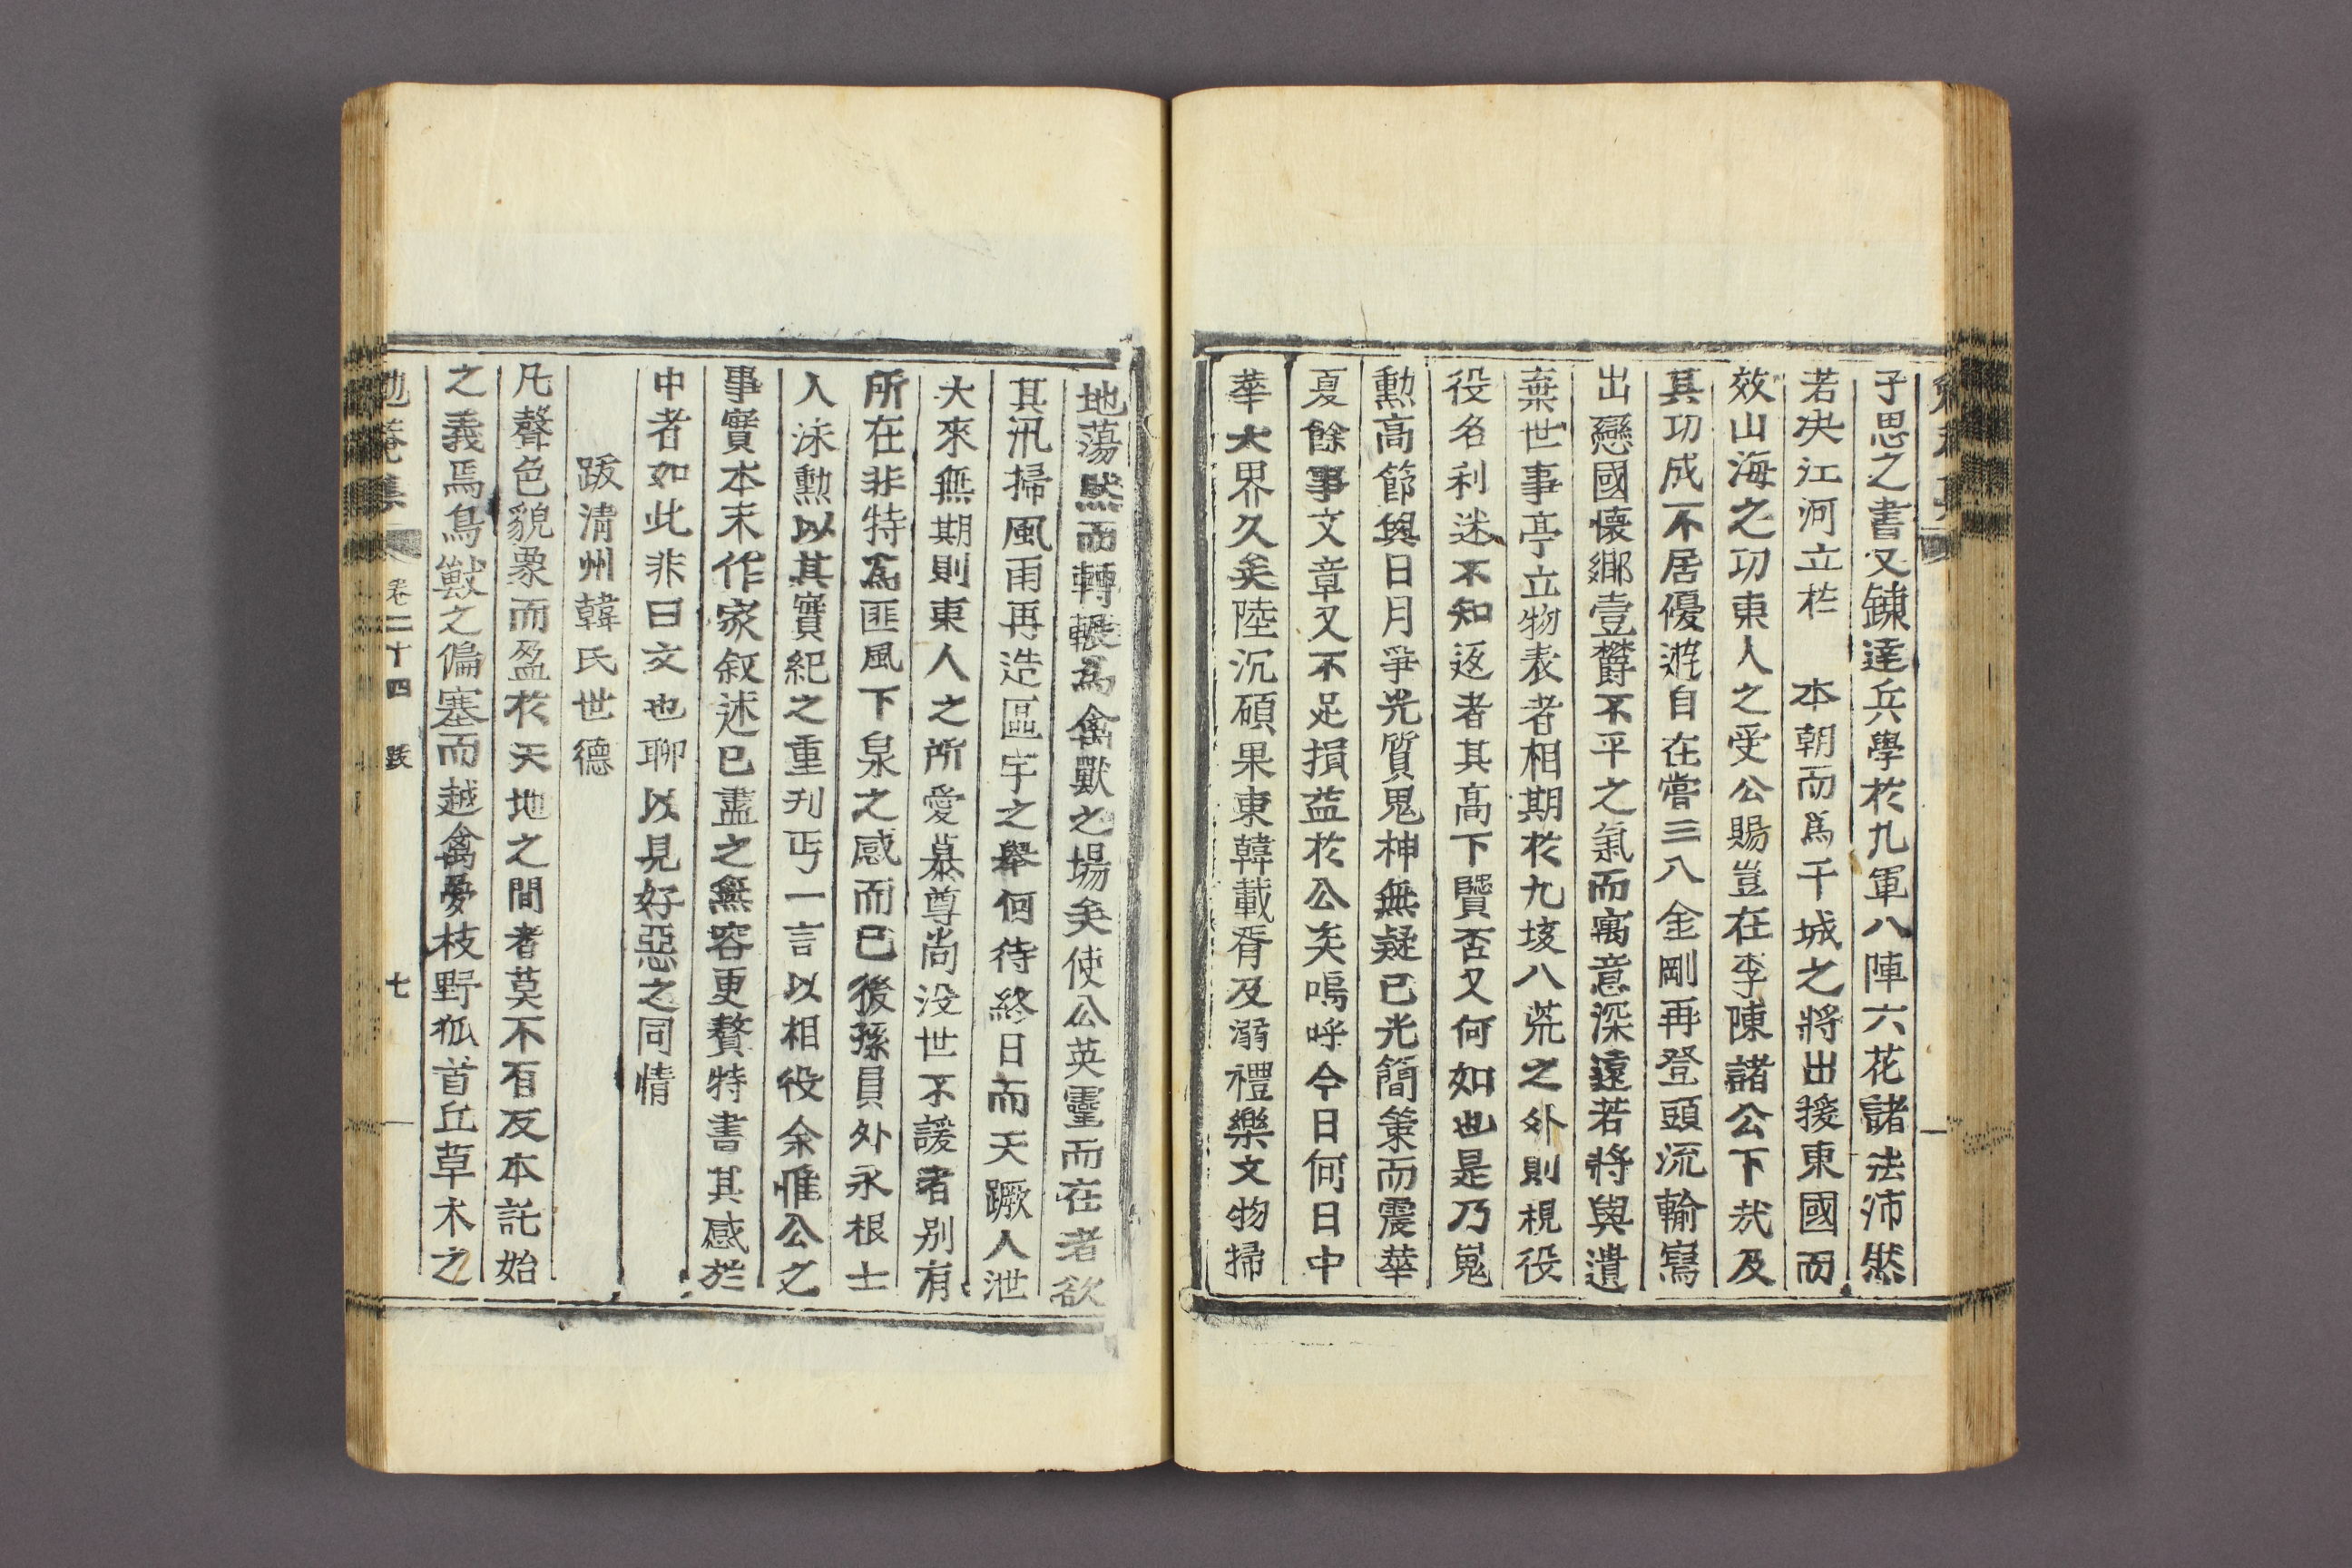 子思之書又鍊達兵學於九軍八陣六花諸法沛然
若决江河立於 本朝而爲干城之將出援東國而
效山海之功東人之受公賜豈在李陳諸公下㢤及
其功成不居優遊自在嘗三八金剛再登頭流輸寫
出戀國懷鄕壹欝不平之氣而寓意深遠若將與遺
棄世事亭立物表者相期於九垓八荒之外則視役
役名利迷不知返者其高下賢否又何如也是乃嵬
勳高節與日月爭光質鬼神無疑已光簡策而震華
夏餘事文章又不足損益於公矣嗚呼今日何日中
華大界久矣陸沉碩果東韓載胥及溺禮樂文物掃
地蕩然而轉輾爲禽獸之場矣使公英靈而在者欲
其汛掃風雨再造區宇之擧何待終日而天蹶人泄
大來無期則東人之所愛慕尊尚没世不諼者别有
所在非特爲匪風下泉之感而已後孫員外永根士
人泳勳以其實紀之重刋丐一言以相役余惟公之
事實本末作家叙述已盡之無容更贅特書其感於
中者如此非曰文也聊以見好惡之同情
跋淸州韓氏世德
凡聲色貌象而盈於天地之間者莫不有反本託始
之義焉鳥獸之偏塞而越禽夢枝野狐首丘草木之
卷二十四 跋 七